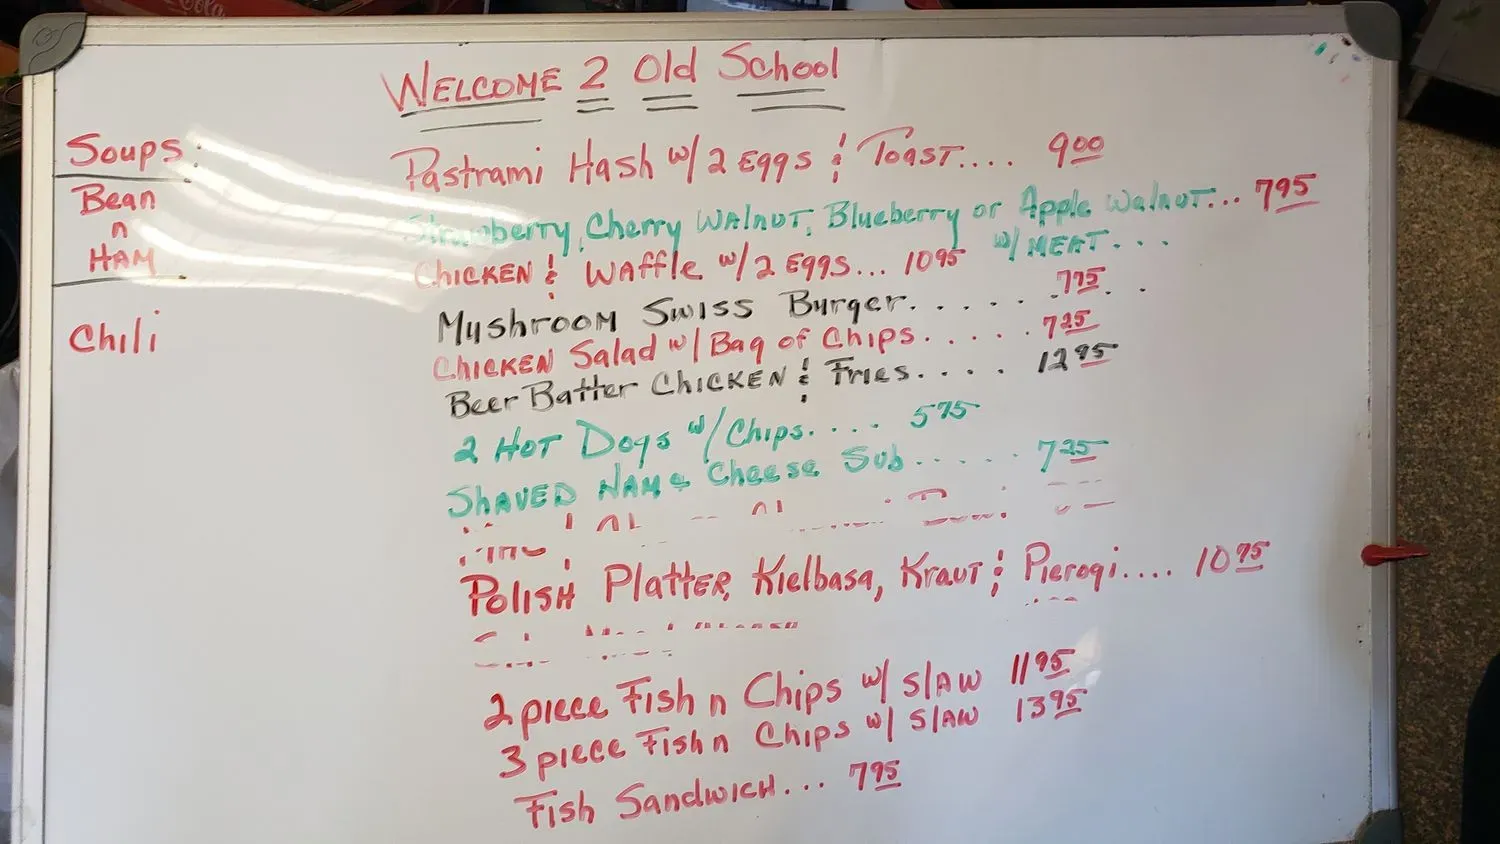 Welcome 2 Old School
Soups:
Bean
n
Ham
Chili
Pastrami Hash w/ 2 Eggs & Toast.... 9 00
Strawberry, Cherry Walnut, Blueberry or Apple Walnut... 7 95
w/ Meat...
Chicken & Waffle w/ 2 Eggs... 10 95
Mushroom Swiss Burger...... 7 75
Chicken Salad w/ Bag of Chips..... 7 25
Beer Batter Chicken & Fries.... 12 95
2 Hot Dogs w/ Chips.... 5 75
Shaved Ham & Cheese Sub..... 7 25
Polish Platter, Kielbasa, Kraut & Pierogi.... 10 75
2 piece Fish n Chips w/ Slaw 11 95
3 piece Fish n Chips w/ Slaw 13 95
Fish Sandwich... 7 95